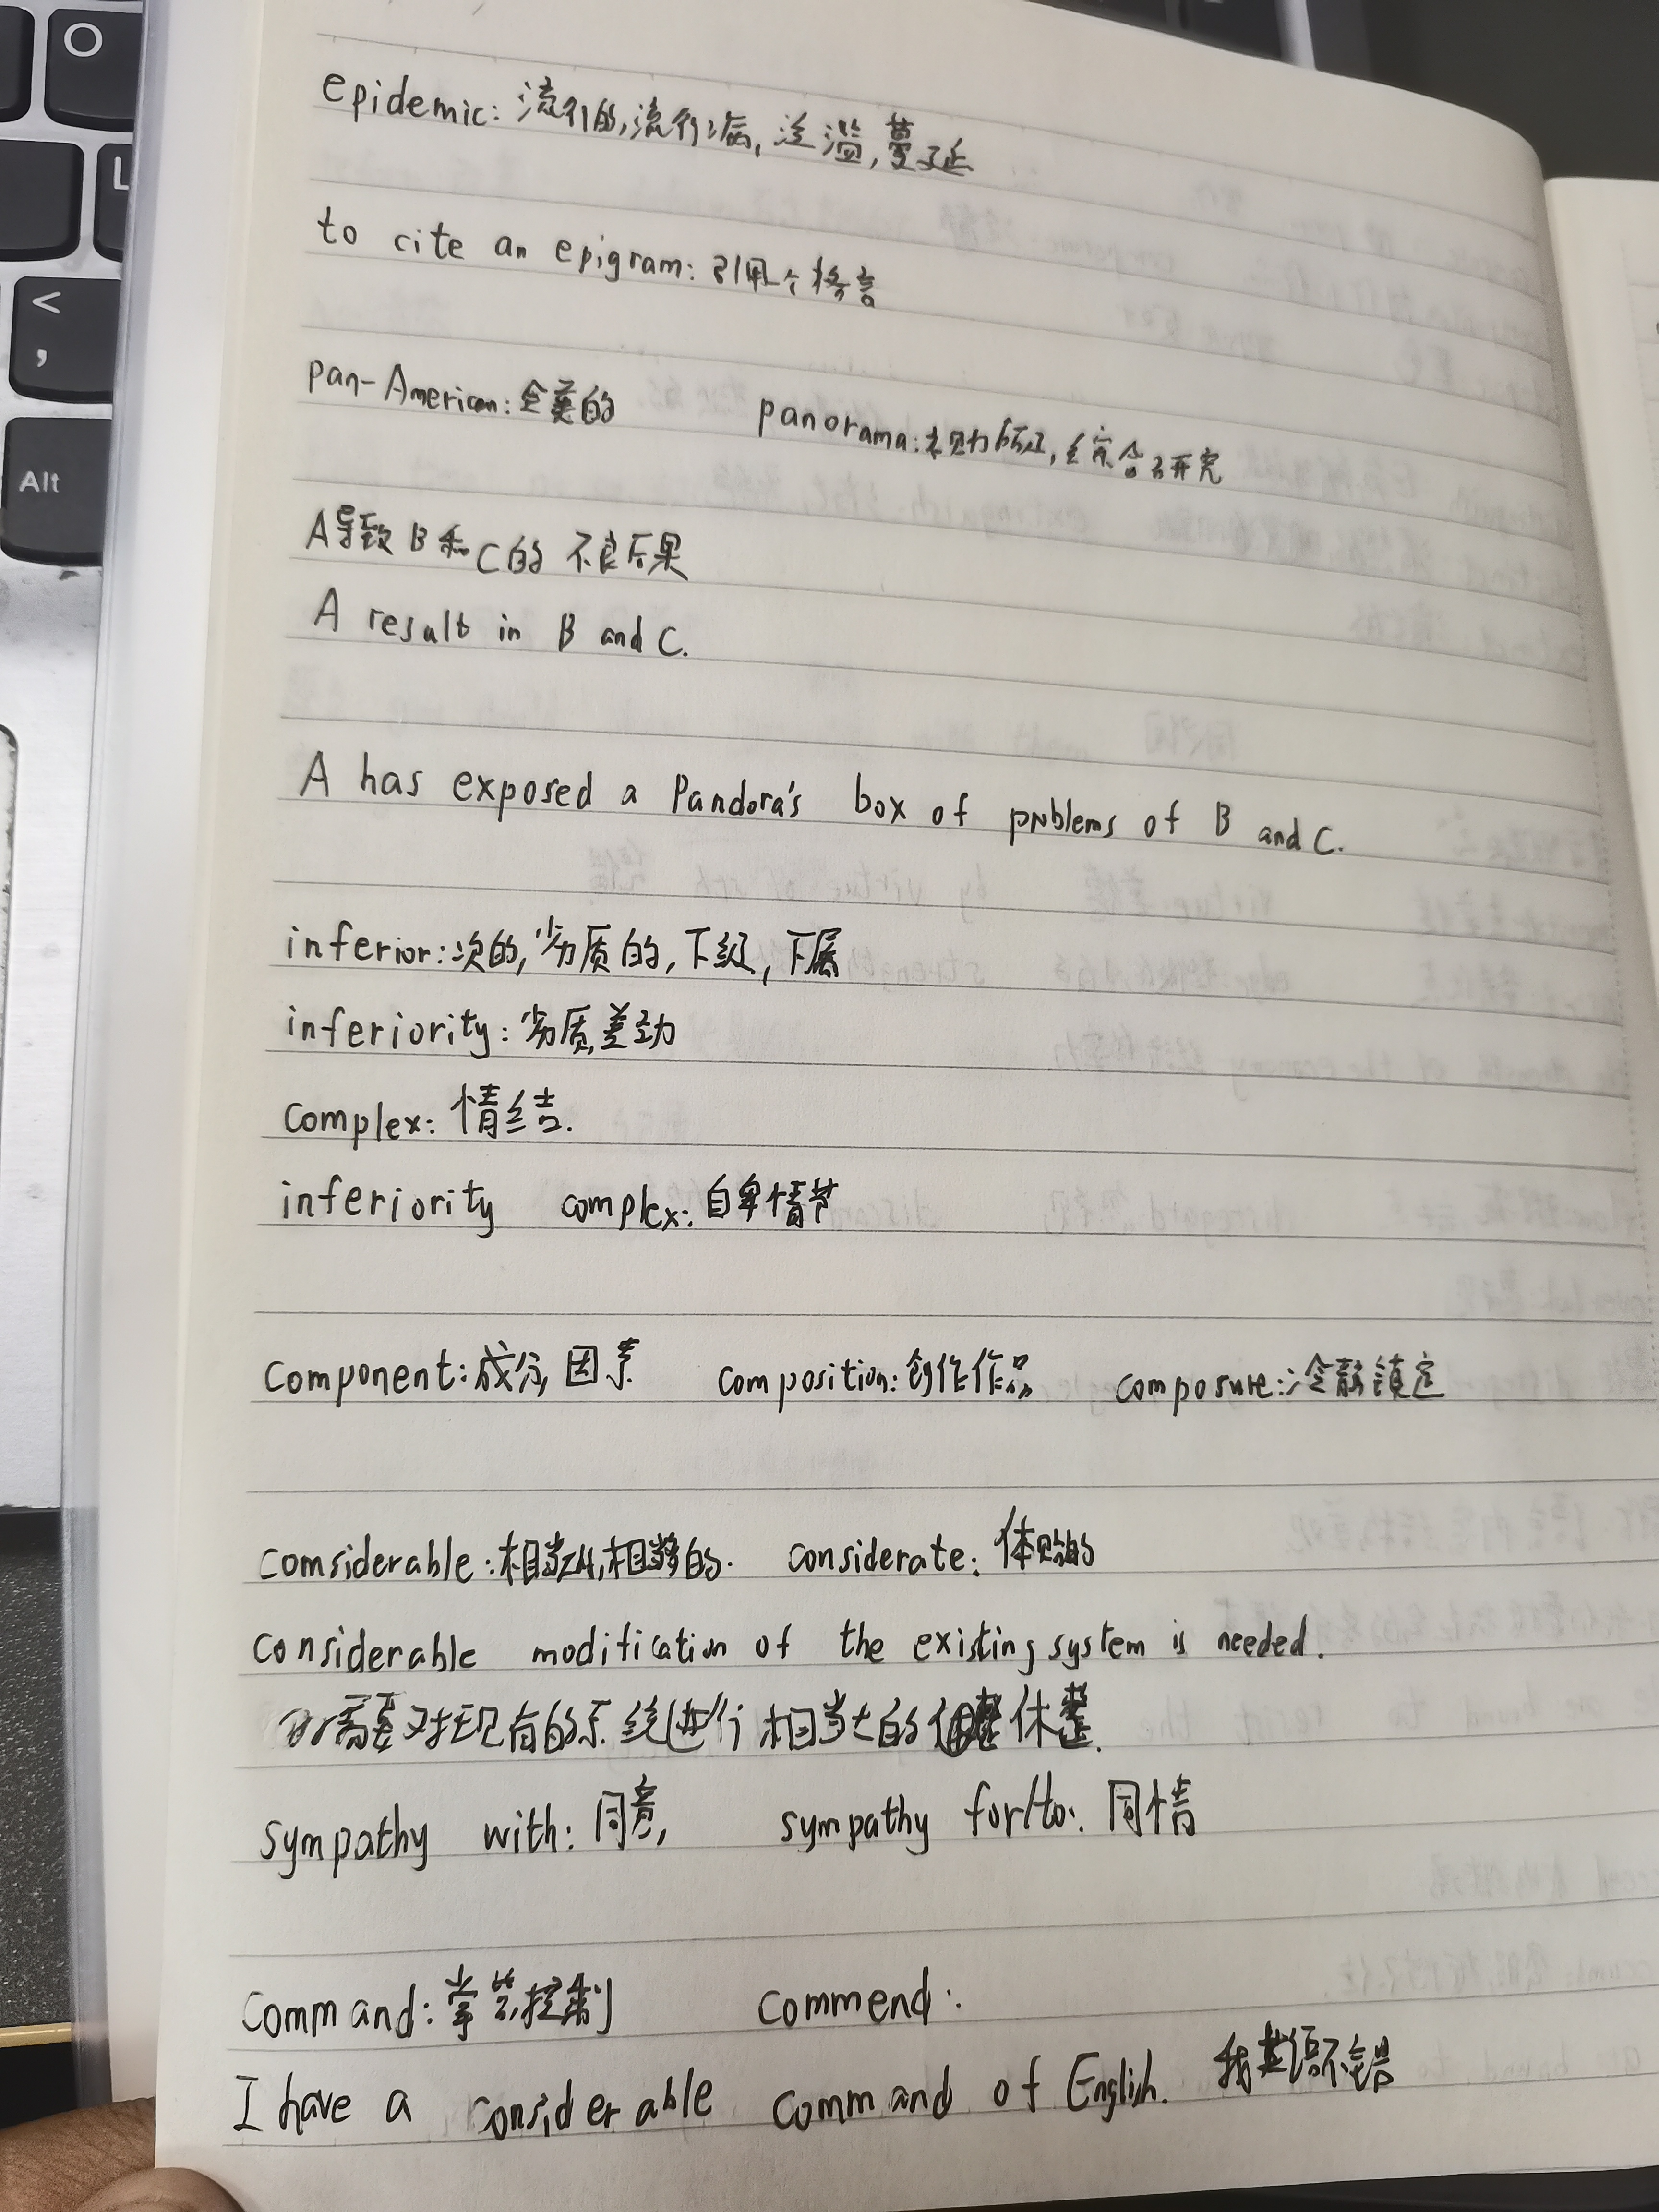 epidemic: 流行的,流行病, 泛滥,蔓延
to cite an epigram: 引用个格言
pan-American: 全美的 panorama: 综合研究
A导致B和C的 不良后果
A result in B and C.
A has exposed a Pandora's box of problems of B and C.
inferior: 次的, 劣质的, 下级, 下属
inferiority: 劣质,差劲
complex: 情结.
inferiority complex: 自卑情节
component: 成分, 因素 composition: 创作作品 composure: 冷静镇定
comsiderable: 相当大,相当多的. considerate: 体贴的
considerable modification of the existing system is needed.
需要对现有的系统进行相当大的休整.
sympathy with: 同意, sympathy for/to: 同情
command: 掌管,控制 commend:
I have a considerable command of English. 我英语不错
O
L
<
,
Alt